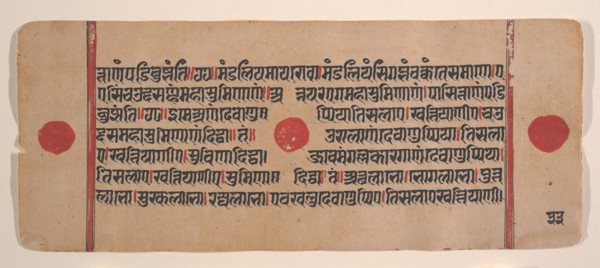 त्ताणं पडिबुज्झंति॥७७॥मंडलियमायरो वा मंडलियंसि गब्भं वक्कंते समाणे ए
एसिं चउद्दसण्हं महासुमिणाणं अन्नयरं एगं महासुमिणाणं पासित्ताणं पडि
बुज्झंति॥७८॥इमेअणं देवाणुप्पिया तिसलाए खत्तियाणीए चउ
द्दसमहासुमिणाणं दिट्ठा॥तं उरालाणं देवाणुप्पिया तिसला
ए खत्तियाणीए सुमिणा दिट्ठा। जाव मंगल्लकारगाणं देवाणुप्पिया
तिसलाए खत्तियाणीए सुमिणा दिट्ठा तं अत्थलाभो भोगलाभो पुत्त
लाभो सुक्खलाभो रज्जलाभो एवं खलु देवाणुप्पिए तिसला खत्तियाणी